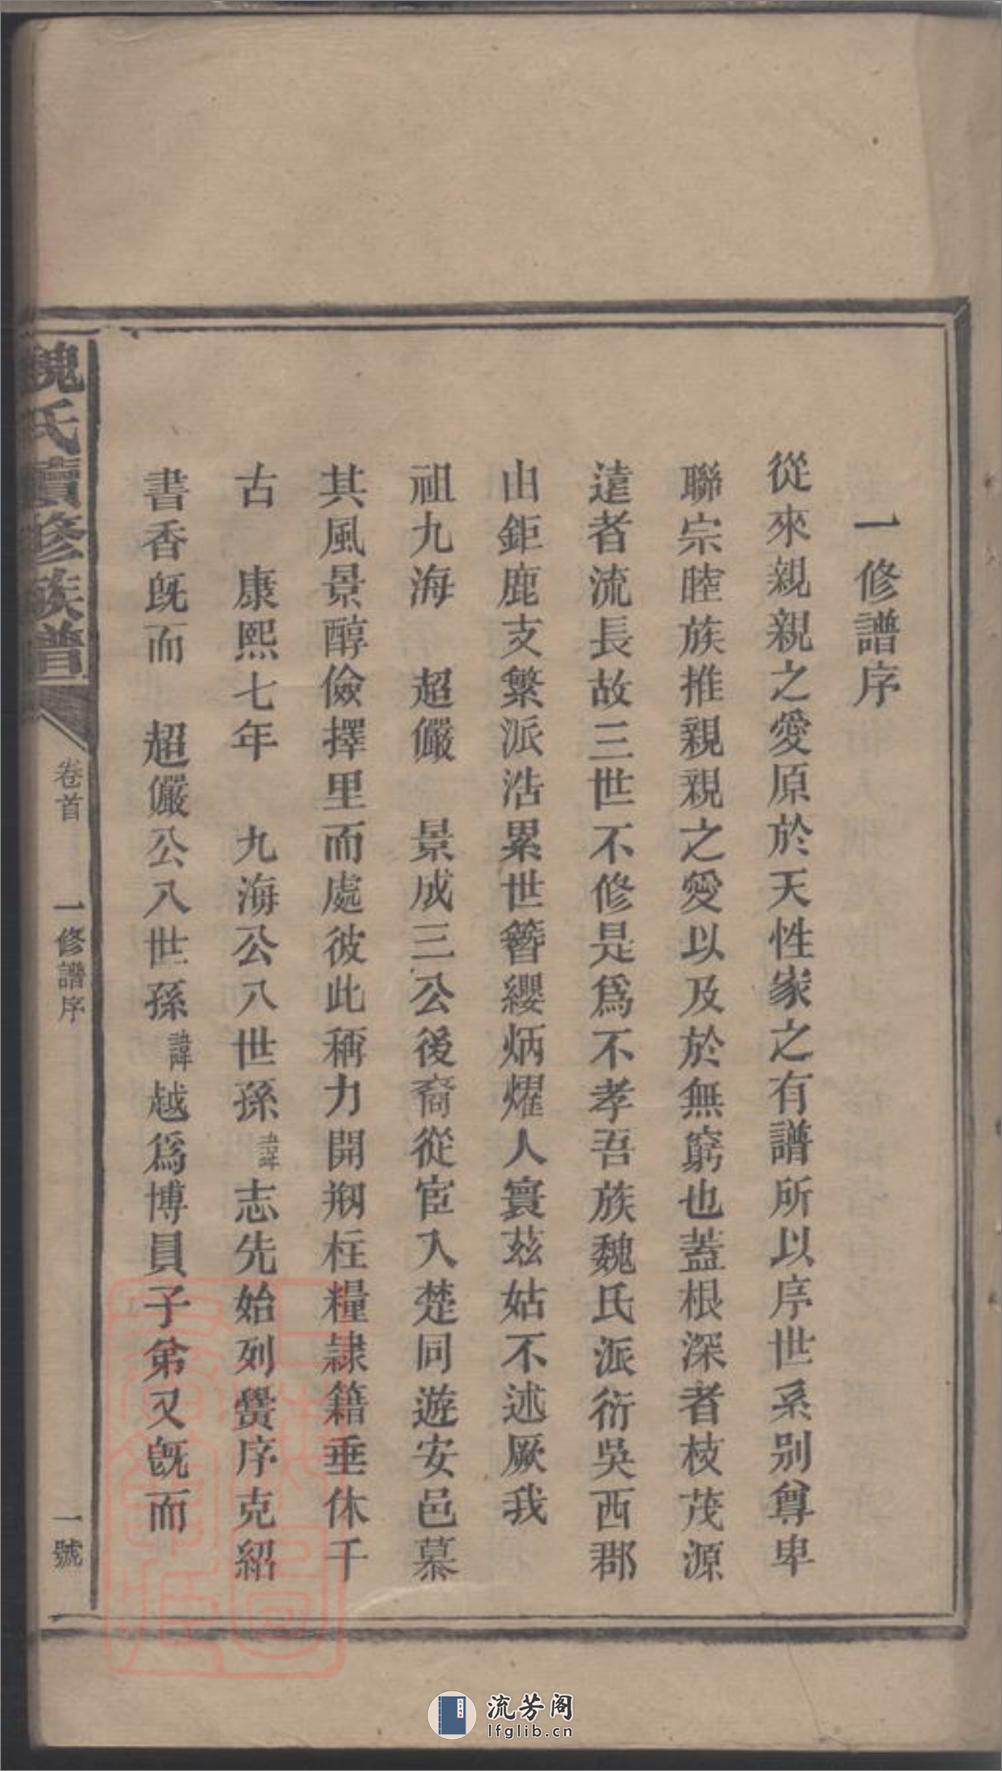 一修譜序
從來親親之愛原於天性家之有譜所以序世系別尊卑
聯宗睦族推親親之愛以及於無窮也蓋根深者枝茂源
遠者流長故三世不修是爲不孝吾族魏氏派衍吳西郡
由鉅鹿支繁派浩累世簪纓炳燿人寰茲姑不述厥我
祖九海　超儼　景成三公後裔從宦入楚同遊安邑慕
其風景醇儉擇里而處彼此稱力開剏柱糧隷籍垂休千
古　康熙七年　九海公八世孫諱志先始列黌序克紹
書香旣而　超儼公八世孫諱越爲博員子弟又旣而
魏氏續修族譜
卷首
一修譜序
一號
流芳阁
lfglib.cn